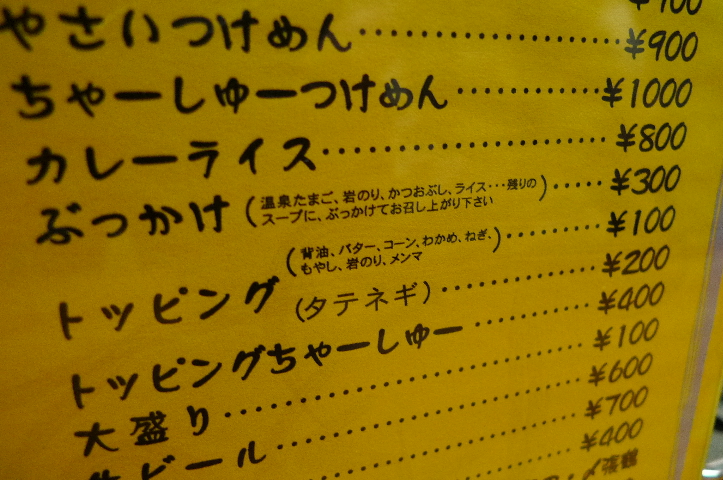 やさいつけめん ¥900
ちゃーしゅーつけめん ¥1000
カレーライス ¥800
ぶっかけ (温泉たまご、岩のり、かつおぶし、ライス・・・残りの
スープに、ぶっかけてお召し上がり下さい) ¥300
(背油、バター、コーン、わかめ、ねぎ、
もやし、岩のり、メンマ) ¥100
トッピング (タテネギ) ¥200
トッピングちゃーしゅー ¥400
大盛り ¥100
生ビール ¥600
¥700
¥400